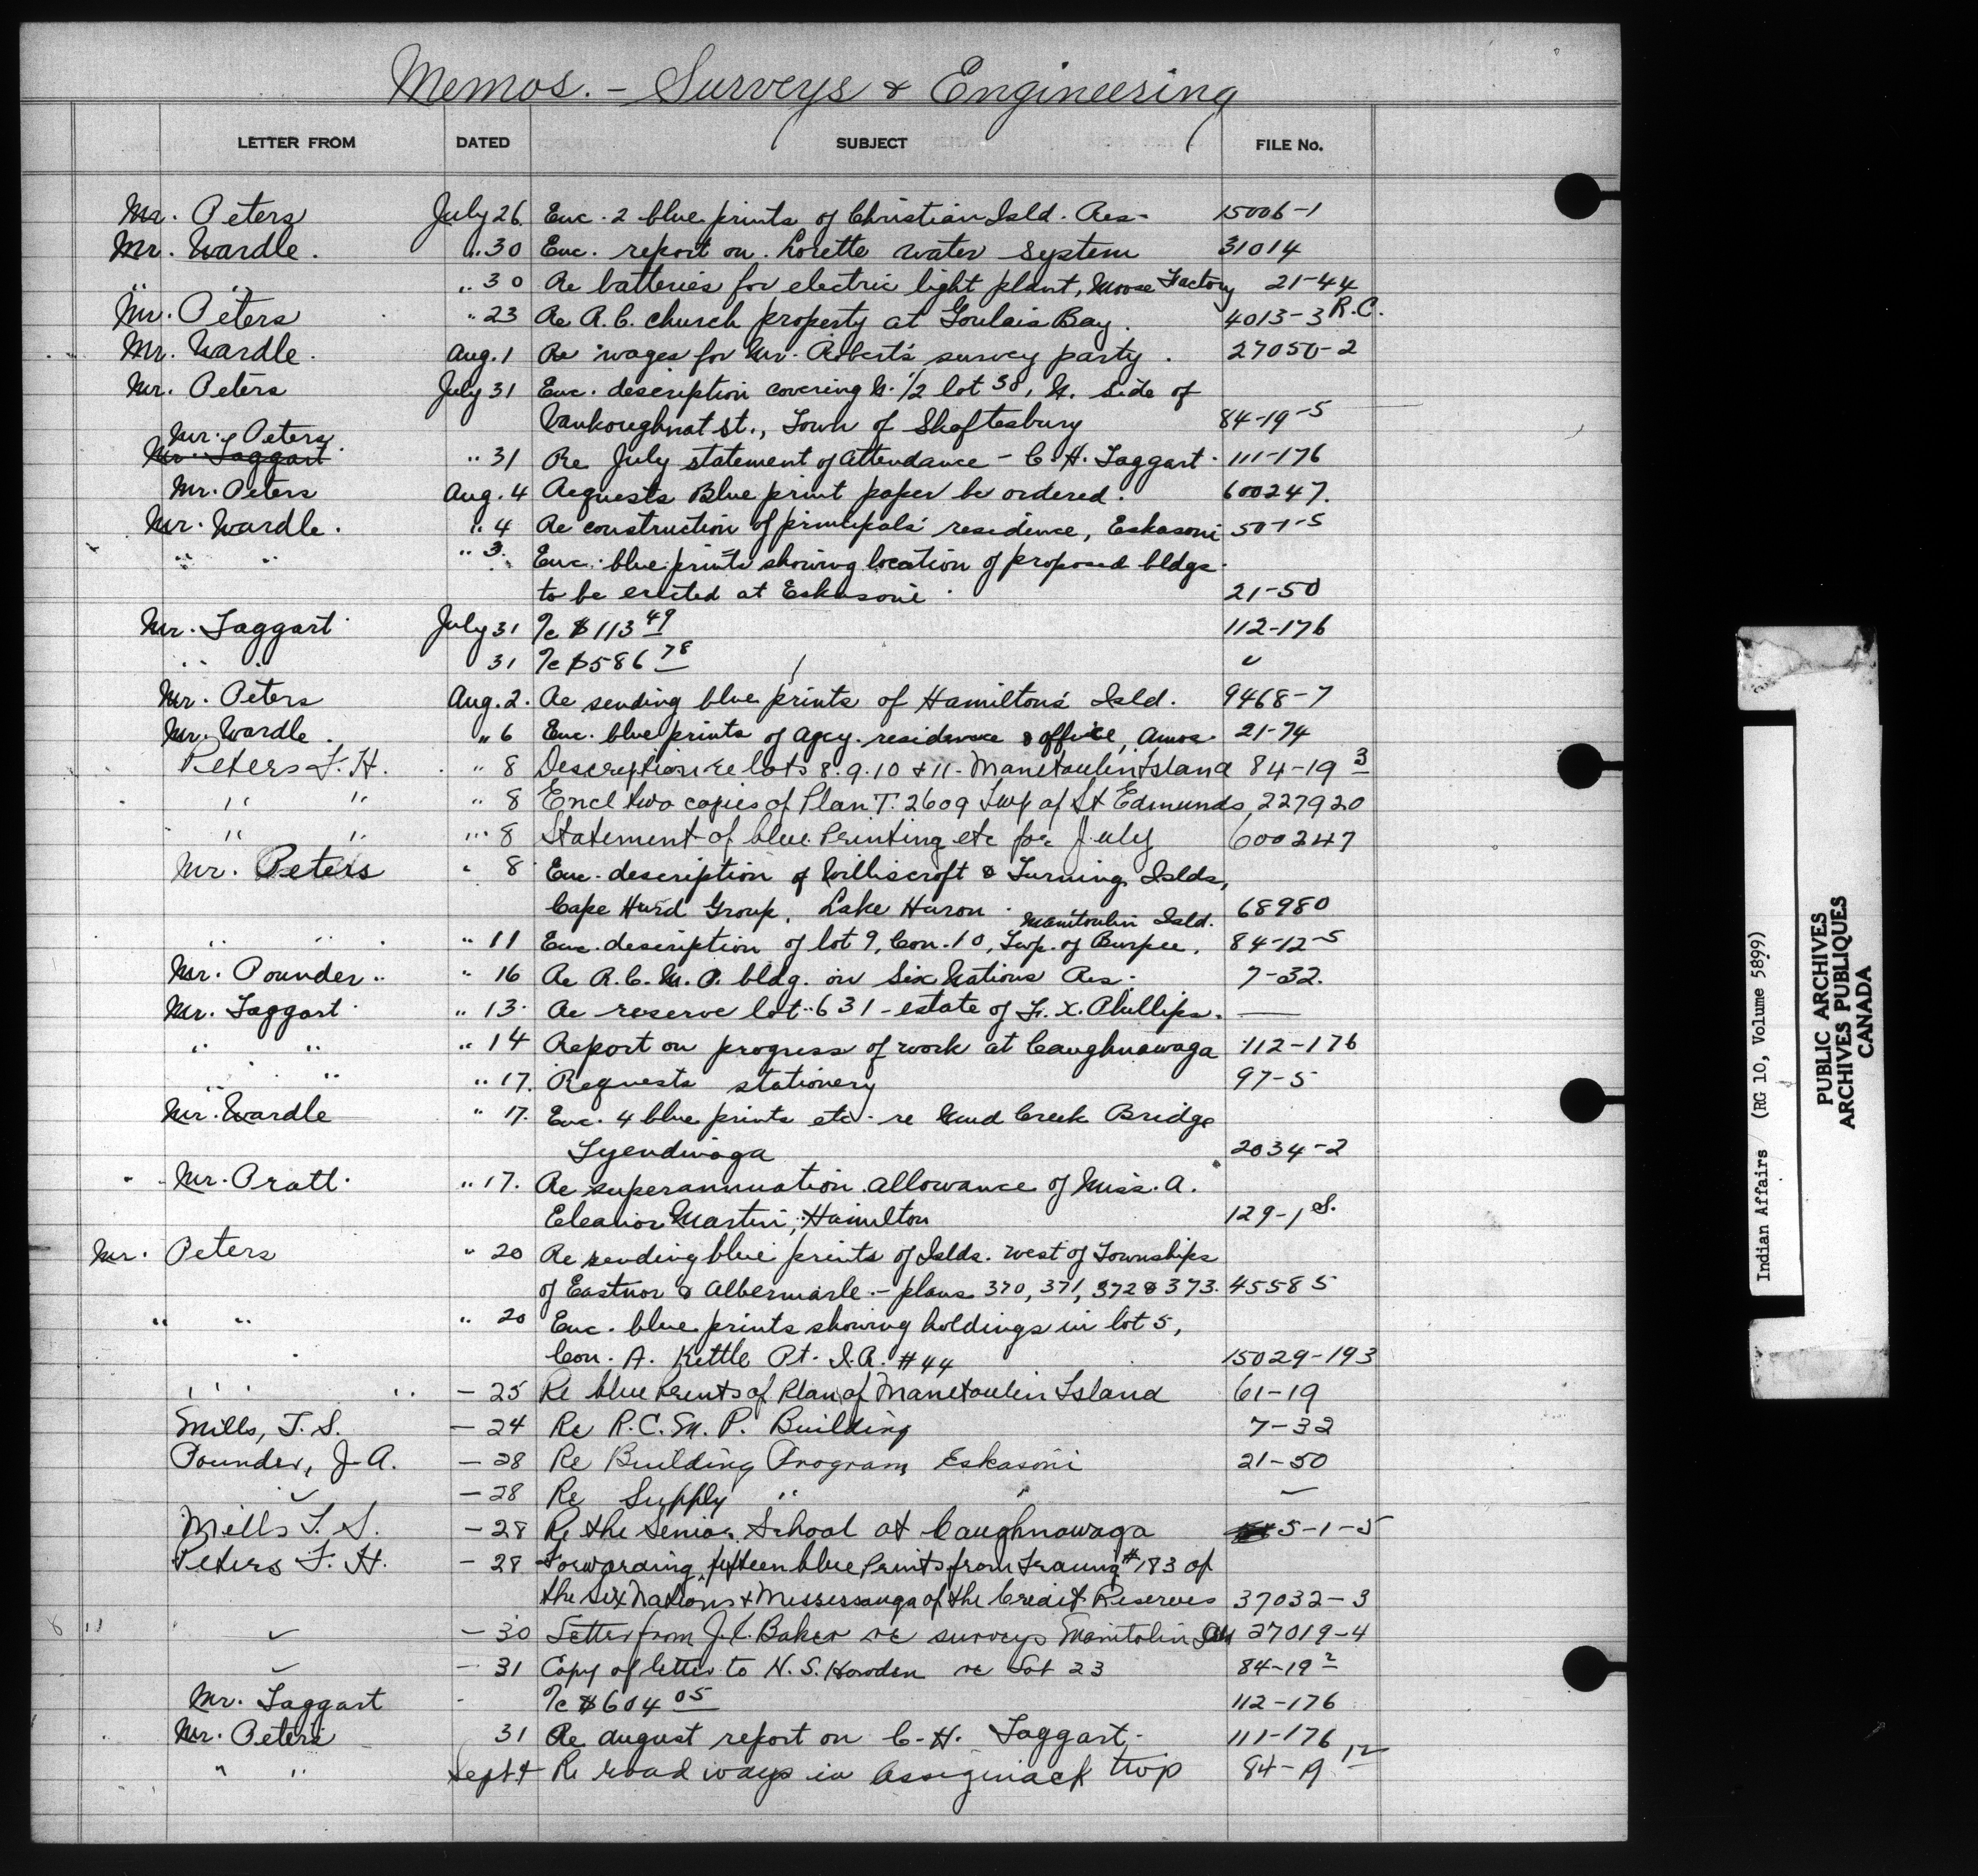 Memos. - Surveys & Engineering
LETTER FROM DATED SUBJECT FILE No.
Mr. Peters July 26 Enc. 2 blue prints of Christian Isld. Res- 15006-1
Mr. Wardle. " 30 Enc. report on Lorette water system 31014
" " " 30 Re batteries for electric light plant, Moose Factory 21-44
Mr. Peters " 23 Re R.C. church property at Goulais Bay. 4013-3 R.C.
Mr. Wardle. Aug. 1 Re wages for Mr. Robert's survey party. 27050-2
Mr. Peters July 31 Enc. description covering N. 1/2 lot 38, N. side of
Vankoughnat St., Town of Shaftesbury 84-19-5
Mr. Peters
Mr. Taggart " 31 Re July statement of attendance - C.H. Taggart. 111-176
Mr. Peters Aug. 4 Requests Blue print paper be ordered. 600247.
Mr. Wardle. " 4 Re construction of principals' residence, Eskasoni 50-1-5
" " " 3. Enc. blue prints showing location of proposed bldgs.
to be erected at Eskasoni. 21-50
Mr. Taggart July 31 %c $113 49 112-176
" " 31 %c $586 78 "
Mr. Peters Aug. 2. Re sending blue prints of Hamilton's Isld. 9468-7
Mr. Wardle. " 6 Enc. blue prints of agcy. residence & office, Amos. 21-74
Peters F.H. " 8 Description re lots 8.9.10 & 11- Manetoulin Island 84-19 3
" " " 8 Encl two copies of Plan T. 2609 Twp of St Edmunds 227920
" " " 8 Statement of blue Printing etc for July 600247
Mr. Peters " 8 Enc. description of Williscroft & Turning Islds,
Cape Hurd Group, Lake Huron. 68980
Manitoulin Isld.
" " " 11 Enc. description of lot 9, Con. 10, Twp. of Burpee. 84-12-5
Mr. Pounder. " 16 Re R.C.M.P. bldg. on Six Nations Res. 7-32.
Mr. Taggart " 13. Re reserve lot 631 - estate of F. X. Phillips. —
" " " 14 Report on progress of work at Caughnawaga 112-176
" " " 17. Requests stationery 97-5
Mr. Wardle " 17. Enc. 4 blue prints etc. re Mud Creek Bridge
Tyendinaga 2034-2
Mr. Pratt. " 17. Re superannuation allowance of Miss. A.
Eleanor Martin, Hamilton 129-1 S.
Mr. Peters " 20 Re sending blue prints of Islds. west of Townships
of Eastnor & Albermarle - plans 370, 371, 372 & 373. 45585
" " " 20 Enc. blue prints showing holdings in lot 5,
Con. A. Kettle Pt. I.R. #44 15029-193
" " - 25 Re blue Prints of Plan of Manetoulin Island 61-19
Mills, T.S. - 24 Re R.C.M.P. Building 7-32
Pounder, J.A. - 28 Re Building Program, Eskasoni 21-50
" - 28 Re Supply " " —
Mills T.S. - 28 Re the Senior School at Caughnawaga 5-1-5
Peters F.H. - 28 Forwarding fifteen blue Prints from Tracing #183 of
the Six Nations & Mississauga of the Credit Reserves 37032-3
" - 30 Letter from J.C. Baker re surveys Manitolin Isld 27019-4
" - 31 Copy of letter to N.S. Howden re Lot 23 84-19 2
Mr. Taggart - %c $604 05 112-176
Mr. Peters 31 Re august report on C.H. Taggart. 111-176
" " Sept 4 Re road ways in Assiginack twp 84-19 12
Indian Affairs (RG 10, Volume 5899)
PUBLIC ARCHIVES
ARCHIVES PUBLIQUES
CANADA